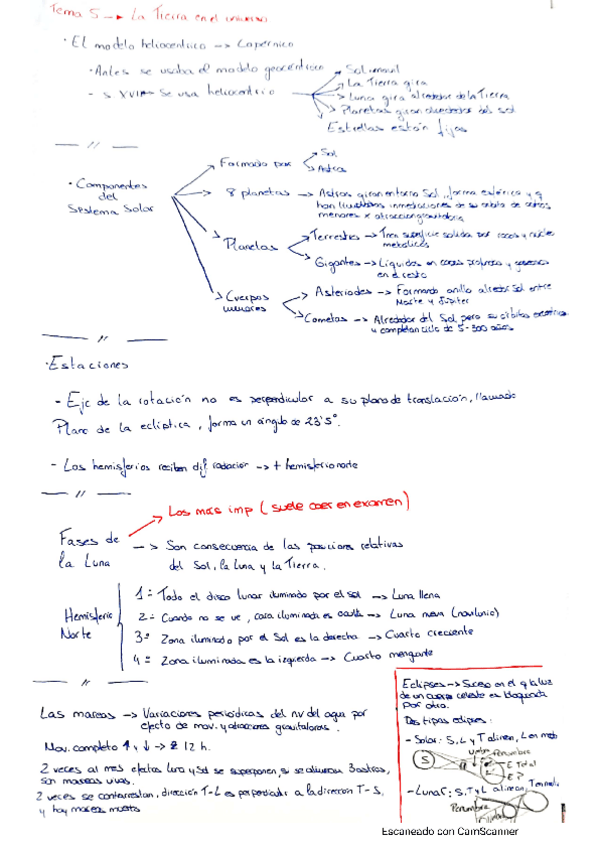 Tema 5 -> La Tierra en el universo
1
· El modelo heliocentrico -> Copernico
· Antes se usaba el modelo geocéntrico
- s XVII Se usa heliocentrico
Sol inmovil
La Tierra gira
Luna gira alrededor de la Tierra
Planetas giran alrededor del sol
Estrellas están fijas
· Componentes del Sistema Solar
Formado por
Sol
Astros
8 planetas -> Astros giran entorno Sol, forma esférica y q
han inmediaciones de su orbita de astros
menores x atraccion gravitatoria
Planetas
Terrestres -> Tren superficie solida por rocas y
metalicos
Gigantes -> Liquidos en capas profunda y gaseosos
en el resto
Cuerpos menores
Asteriodes -> Formando anillo alrededor Sol entre
Marte y Jupiter
Cometas -> Alrededor del Sol pero su orbitas
y completan ciclo de 5-300 años
· Estaciones
- Eje de la rotación no es perpendicular a su plano de translación, llamado
Plano de la ecliptica, forma un ángulo de 23'5°.
- Los hemisferios reciben dif radiacion -> + hemisferio norte
Los más imp (suele caer en examen)
Fases de la Luna
-> Son consecuencia de las posiciones relativas
del Sol, la luna y la Tierra.
Hemisferio Norte
1= Todo el disco lunar iluminado por el sol -> Luna llena
2= Cuando no se ve, cara iluminada es oculta -> Luna nueva (novilunio)
3= Zona iluminada por el Sol es la derecha -> Cuarto creciente
4= Zona iluminada es la izquierda -> Cuarto menguante
Las mareas -> Variaciones periódicas del nv del agua por
efecto de mov. y atracciones gravitatorias.
Mov. completo ↑ y ↓ -> 12 h.
2 veces al mes efectos luna y Sol se superponen, si se alinean 3 astros,
son mareas vivas.
2 veces se contrarrestan, dirección T-L es perpendicular a la direccion T-S,
y hay mareas muertas
Eclipses -> Suceso en el q la luz
de un cuerpo celeste es bloqueada
por otro.
Dos tipos eclipses:
- Solar: S, L y T alinean, L en medio
Umbra Penumbra
S
E Total
E P
- Lunar: S, T y L alinean, T en medio
Penumbra
Escaneado con CamScanner